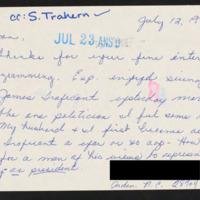 cc: S. Trahern ✓
July 12, 19
JUL 23 ANS'D
Thanks for your fine inter
gramming. Esp. enjoyed seeing
James Traficant yesterday mor
the one politician I put some
My husband & I first became a
Traficant a year or so ago. Ho
for a man of his views to represent
as president
Arden, N.C. 28704